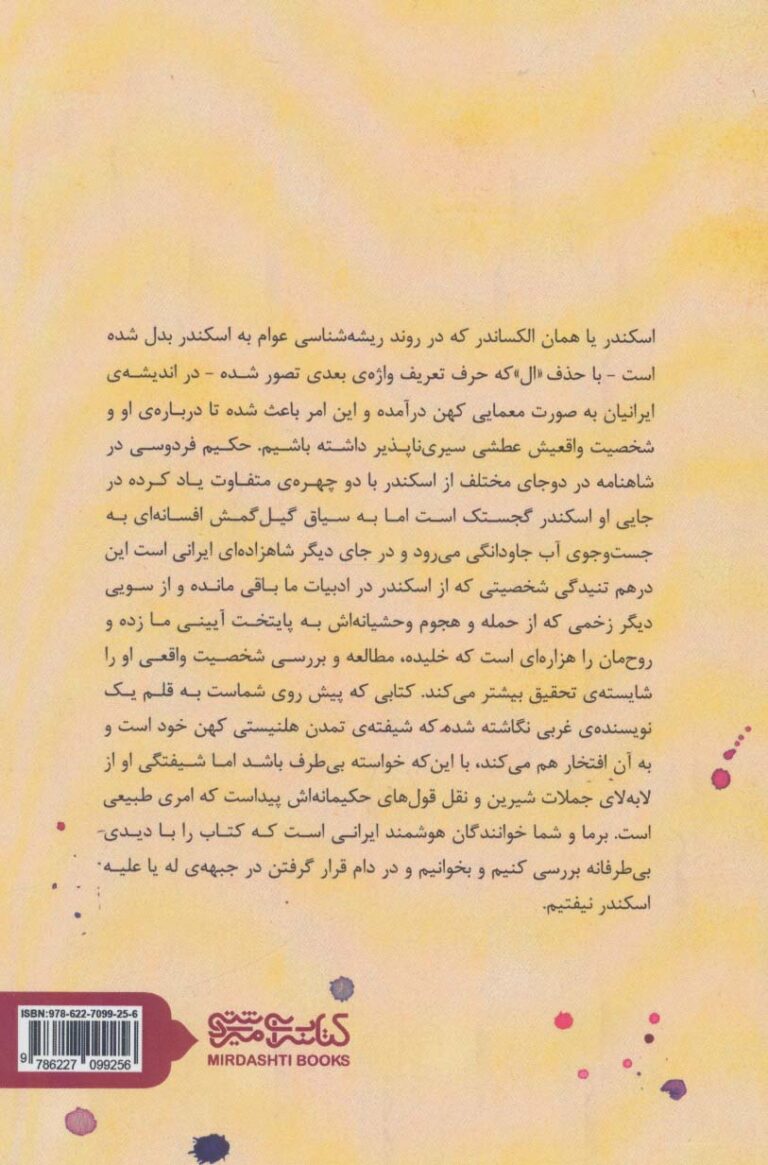 اسکندر یا همان الکساندر که در روند ریشه‌شناسی عوام به اسکندر بدل شده
است – با حذف «ال»که حرف تعریف واژه‌ی بعدی تصور شده – در اندیشه‌ی
ایرانیان به صورت معمایی کهن درآمده و این امر باعث شده تا درباره‌ی او و
شخصیت واقعیش عطشی سیری‌ناپذیر داشته باشیم. حکیم فردوسی در
شاهنامه در دوجای مختلف از اسکندر با دو چهره‌ی متفاوت یاد کرده در
جایی او اسکندر گجستک است اما به سیاق گیل‌گمش افسانه‌ای به
جست‌وجوی آب جاودانگی می‌رود و در جای دیگر شاهزاده‌ای ایرانی است این
درهم تنیدگی شخصیتی که از اسکندر در ادبیات ما باقی مانده و از سویی
دیگر زخمی که از حمله و هجوم وحشیانه‌اش به پایتخت آیینی ما زده و
روح‌مان را هزاره‌ای است که خلیده، مطالعه و بررسی شخصیت واقعی او را
شایسته‌ی تحقیق بیشتر می‌کند. کتابی که پیش روی شماست به قلم یک
نویسنده‌ی غربی نگاشته شده که شیفته‌ی تمدن هلنیستی کهن خود است و
به آن افتخار هم می‌کند، با این‌که خواسته بی‌طرف باشد اما شیفتگی او از
لابه‌لای جملات شیرین و نقل قول‌های حکیمانه‌اش پیداست که امری طبیعی
است. برما و شما خوانندگان هوشمند ایرانی است که کتاب را با دیدی
بی‌طرفانه بررسی کنیم و بخوانیم و در دام قرار گرفتن در جبهه‌ی له یا علیه
اسکندر نیفتیم.
کتابسرای میردشتی
MIRDASHTI BOOKS
ISBN:978-622-7099-25-6
9 786227 099256